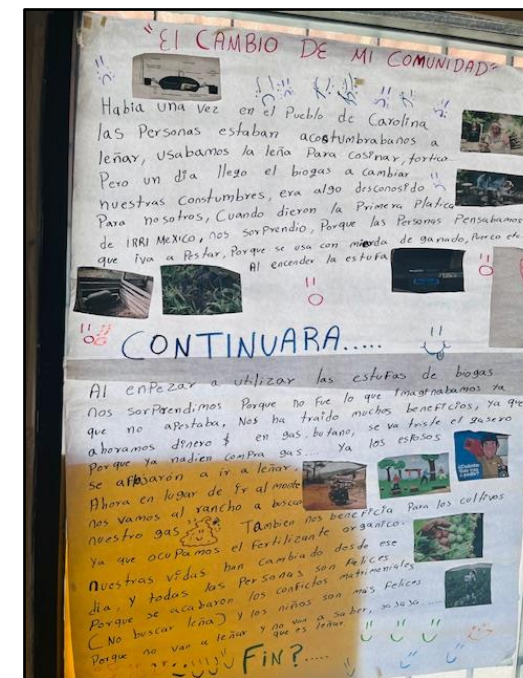 "El CAMBIO DE MI COMUNIDAD"
Habia una vez en el Pueblo de Carolina
las Personas estaban acostumbrabanos a
leñar, usabamos la leña Para cosinar, tortea
Pero un dia llego el biogas a cambiar
nuestras constumbres, era algo desconosido
Para nosotros, Cuando dieron la Primera Platica
de IRRI MEXICO, nos sorprendio, Porque las Personas Pensabamos
que iva a Pestar, Porque se usa con mierda de ganado, Puerco etc.
Al encender la estufa
CONTINUARA.....
Al enpezar a utilizar las estufas de biogas
nos sorprendimos Porque no fue lo que Imaginabamos ya
que no apestaba, Nos ha traido muchos beneficios, ya que
ahoramos dinero $ en gas butano, se va triste el gasero
Porque ya nadien compra gas.... Ya los esposos
se aflojaron a ir a leñar.
Ahora en lugar de ir al monte
nos vamos al rancho a buscar
nuestro gas Tambien nos beneficia Para los cultivos
ya que ocupamos el fertilizante organico.
nuestras vidas han cambiado desde ese
dia, y todas las Personas son felices
Porque se acabaron los conflictos matrimoniales
(No buscar leña) y los niños son más felices
Porque no van a leñar y no van a saber, jajaja....
que es leñar.
FIN?.....